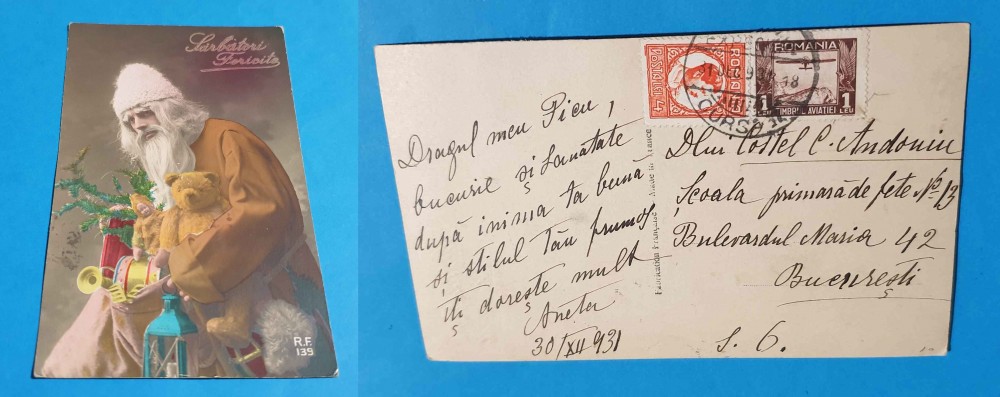 Sărbători
Fericite
R.F.
139
Dragul meu Picu,
bucurie și sănătate
după inima ta bună
și stilul tău frumos
îți dorește mult
Aneta
30/XII 931
Fabrication Française - Made in France
ROMANIA
1 1
LEU TIMBRUL AVIATIEI LEU
CURSA
Dlui Costel C. Andoniu
Școala primară de fete No 13
Bulevardul Maria 42
București
S. 6.